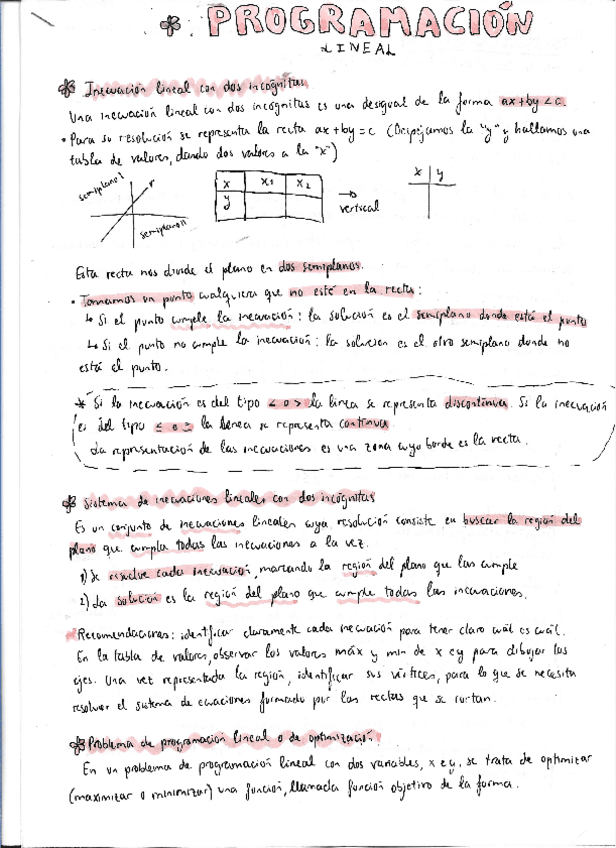 * PROGRAMACIÓN
LINEAL
* Inecuación lineal con dos incógnitas
Una inecuación lineal con dos incógnitas es una desigual de la forma ax+by<c.
• Para su resolución se representa la recta ax+by=c (Despejamos la "y" y hallamos una
tabla de valores, dando dos valores a la "x")
semiplano I
r
semiplano II
x x1 x2
y
→ vertical
x y
Esta recta nos divide el plano en dos semiplanos.
• Tomamos un punto cualquiera que no esté en la recta:
↳ Si el punto cumple la inecuación: la solución es el semiplano donde está el punto
↳ Si el punto no cumple la inecuación: la solucion es el otro semiplano donde no
está el punto.
* Si la inecuación es del tipo < o > la linea se representa discontinua. Si la inecuación
es del tipo ≤ o ≥ la linea se representa continua
La representación de las inecuaciones es una zona cuyo borde es la recta.
* Sistema de inecuaciones lineales con dos incógnitas
Es un conjunto de inecuaciones lineales cuya resolución consiste en buscar la región del
plano que cumpla todas las inecuaciones a la vez.
1) Se resuelve cada inecuación, marcando la región del plano que las cumple
2) La solución es la región del plano que cumple todas las inecuaciones.
Recomendaciones: identificar claramente cada inecuación para tener claro cuál es cuál.
En la tabla de valores, observar los valores máx y min de x e y para dibujar los
ejes. Una vez representada la región, identificar sus vértices, para lo que se necesita
resolver el sistema de ecuaciones formado por las rectas que se cortan.
* Problema de programación lineal o de optimización.
En un problema de programación lineal con dos variables, x e y, se trata de optimizar
(maximizar o minimizar) una función, llamada función objetivo de la forma.